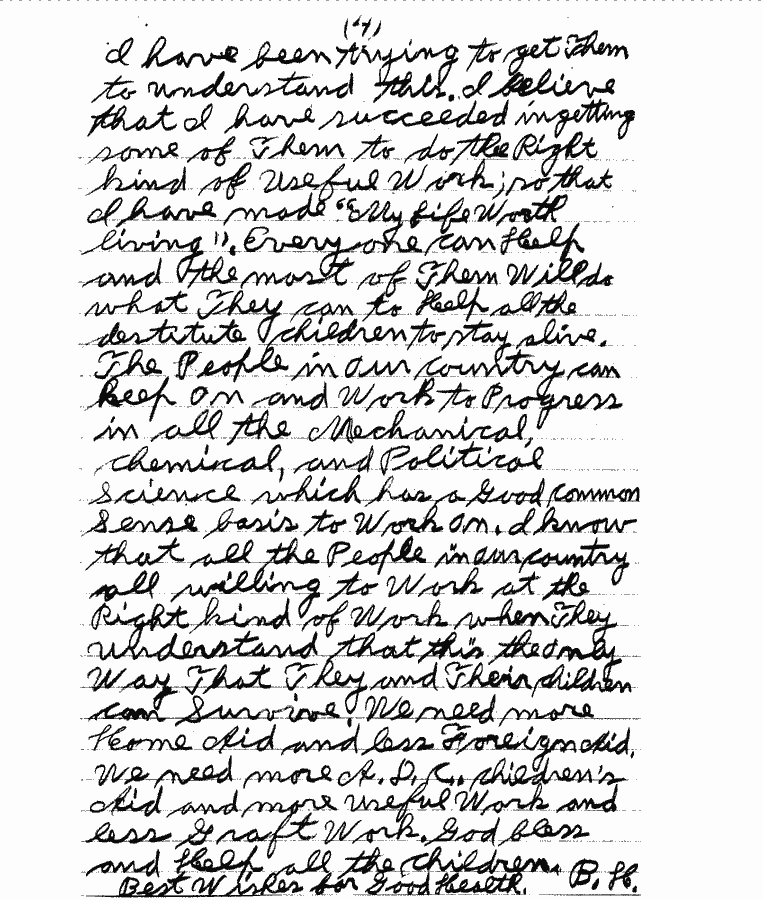 (4)
I have been trying to get Them
to understand this. I believe
that I have succeeded in getting
some of Them to do the Right
kind of Useful Work; so that
I have made "My Life Worth
living". Every one can Help
and the most of Them Will do
what They can to Help all the
destitute children to stay alive.
The People in our country can
keep on and Work to Progress
in all the Mechanical,
chemical, and Political
Science which has a Good common
Sense basis to Work on. I know
that all the People in our country
all willing to Work at the
Right kind of Work when They
understand that this the only
Way That They and Their children
can Survive. We need more
Home Aid and less Foreign Aid.
We need more A. D. C., children's
Aid and more useful Work and
less Graft Work. God bless
and Help all the children. B. H.
Best Wishes for Good Health.